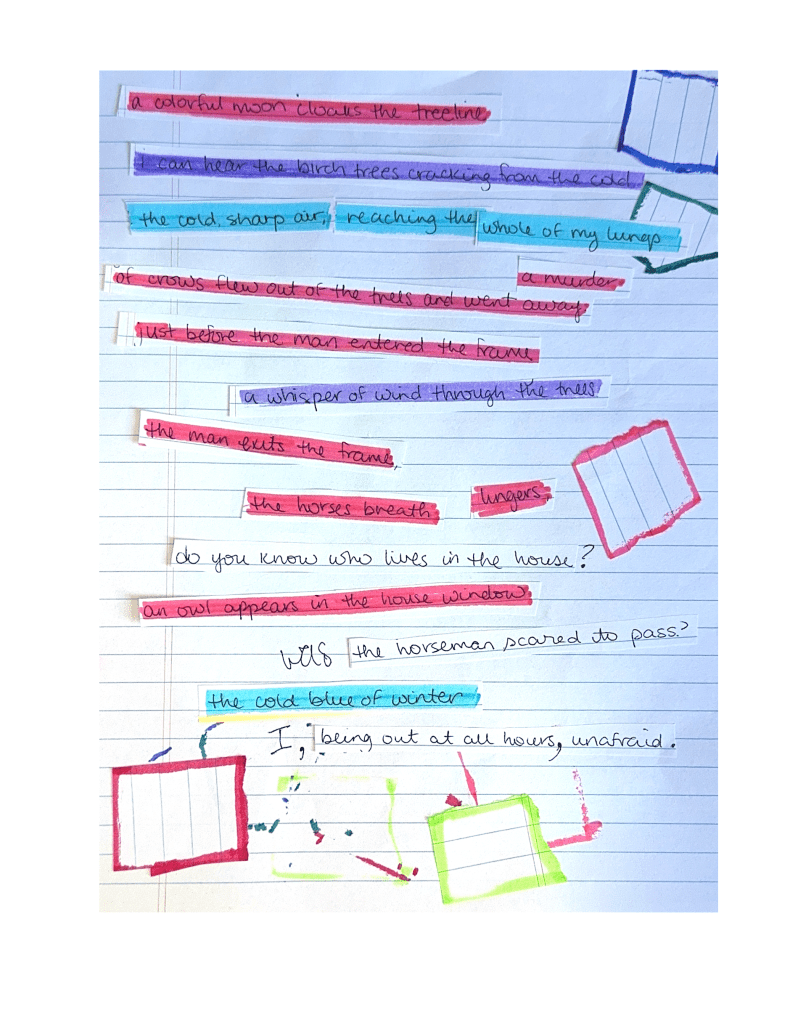 a colorful moon cloaks the treeline
I can hear the birch trees cracking from the cold
the cold, sharp air, reaching the whole of my lungs
a murder
of crows flew out of the trees and went away
just before the man entered the frame
a whisper of wind through the trees
the man exits the frame,
the horses breath lingers,
do you know who lives in the house?
an owl appears in the house window
was the horseman scared to pass?
the cold blue of winter
I, being out at all hours, unafraid.